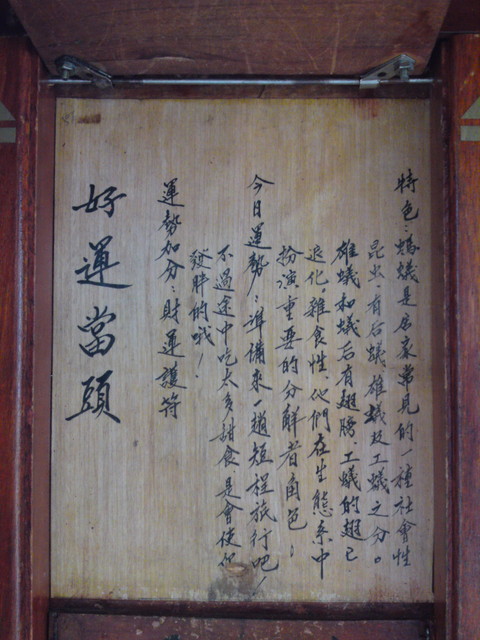 特色：螞蟻是居家常見的一種社會性
昆虫、有后蟻、雄蟻及工蟻之分。
雄蟻和蟻后有翅膀、工蟻的翅已
退化。雜食性、他們在生態系中
扮演重要的分解者角色！
今日運勢：準備來一趟短程旅行吧！
不過途中吃太多甜食是會使你
發胖的哦！
運勢加分：財運護符
好運當頭